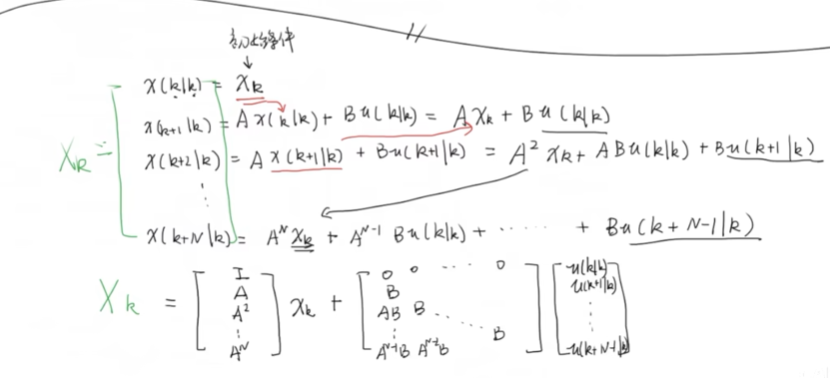 初始条件
↓
x(k|k) = x_k
x(k+1|k) = A x(k|k) + B u(k|k) = A x_k + B u(k|k)
X_k = x(k+2|k) = A x(k+1|k) + B u(k+1|k) = A² x_k + A B u(k|k) + B u(k+1|k)
⋮
x(k+N|k) = A^N x_k + A^{N-1} B u(k|k) + ⋯⋯ + B u(k+N-1|k)
X_k = [I A A² ⋮ A^N] x_k + [0 0 ⋯ 0 B AB B ⋱ ⋮ B A^{N-1}B A^{N-2}B] [u(k|k) u(k+1|k) ⋮ u(k+N-1|k)]